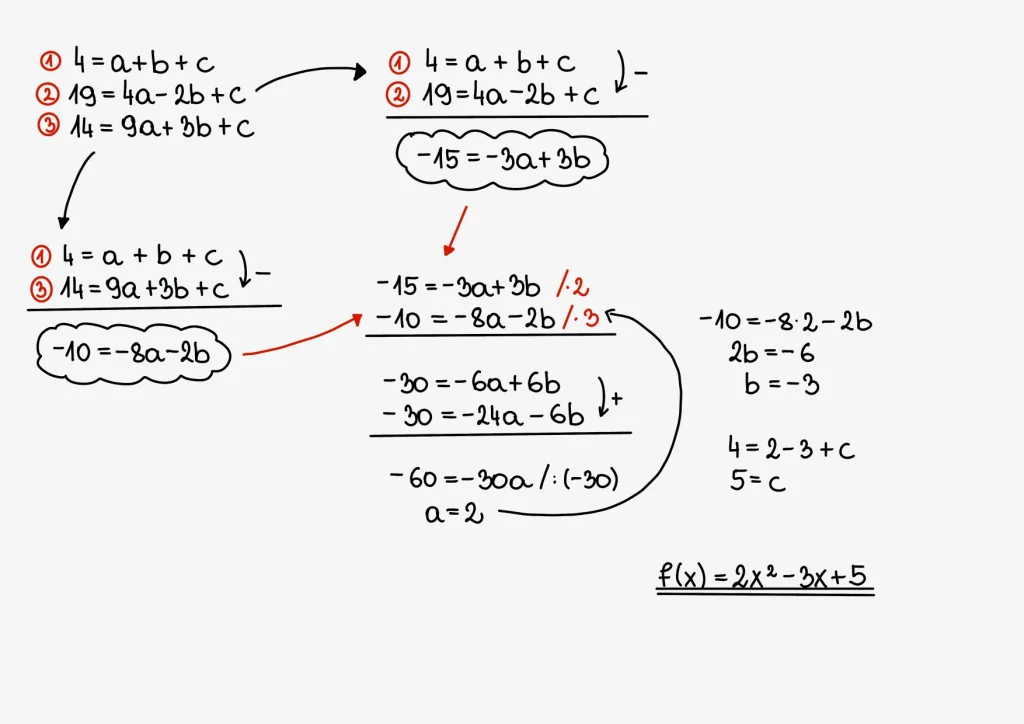 ① 4 = a + b + c
② 19 = 4a - 2b + c
③ 14 = 9a + 3b + c
① 4 = a + b + c
② 19 = 4a - 2b + c
-
-15 = -3a + 3b
① 4 = a + b + c
③ 14 = 9a + 3b + c
-
-10 = -8a - 2b
-15 = -3a + 3b /·2
-10 = -8a - 2b /·3
-30 = -6a + 6b
-30 = -24a - 6b
+
-60 = -30a /:(-30)
a = 2
-10 = -8·2 - 2b
2b = -6
b = -3
4 = 2 - 3 + c
5 = c
f(x) = 2x² - 3x + 5